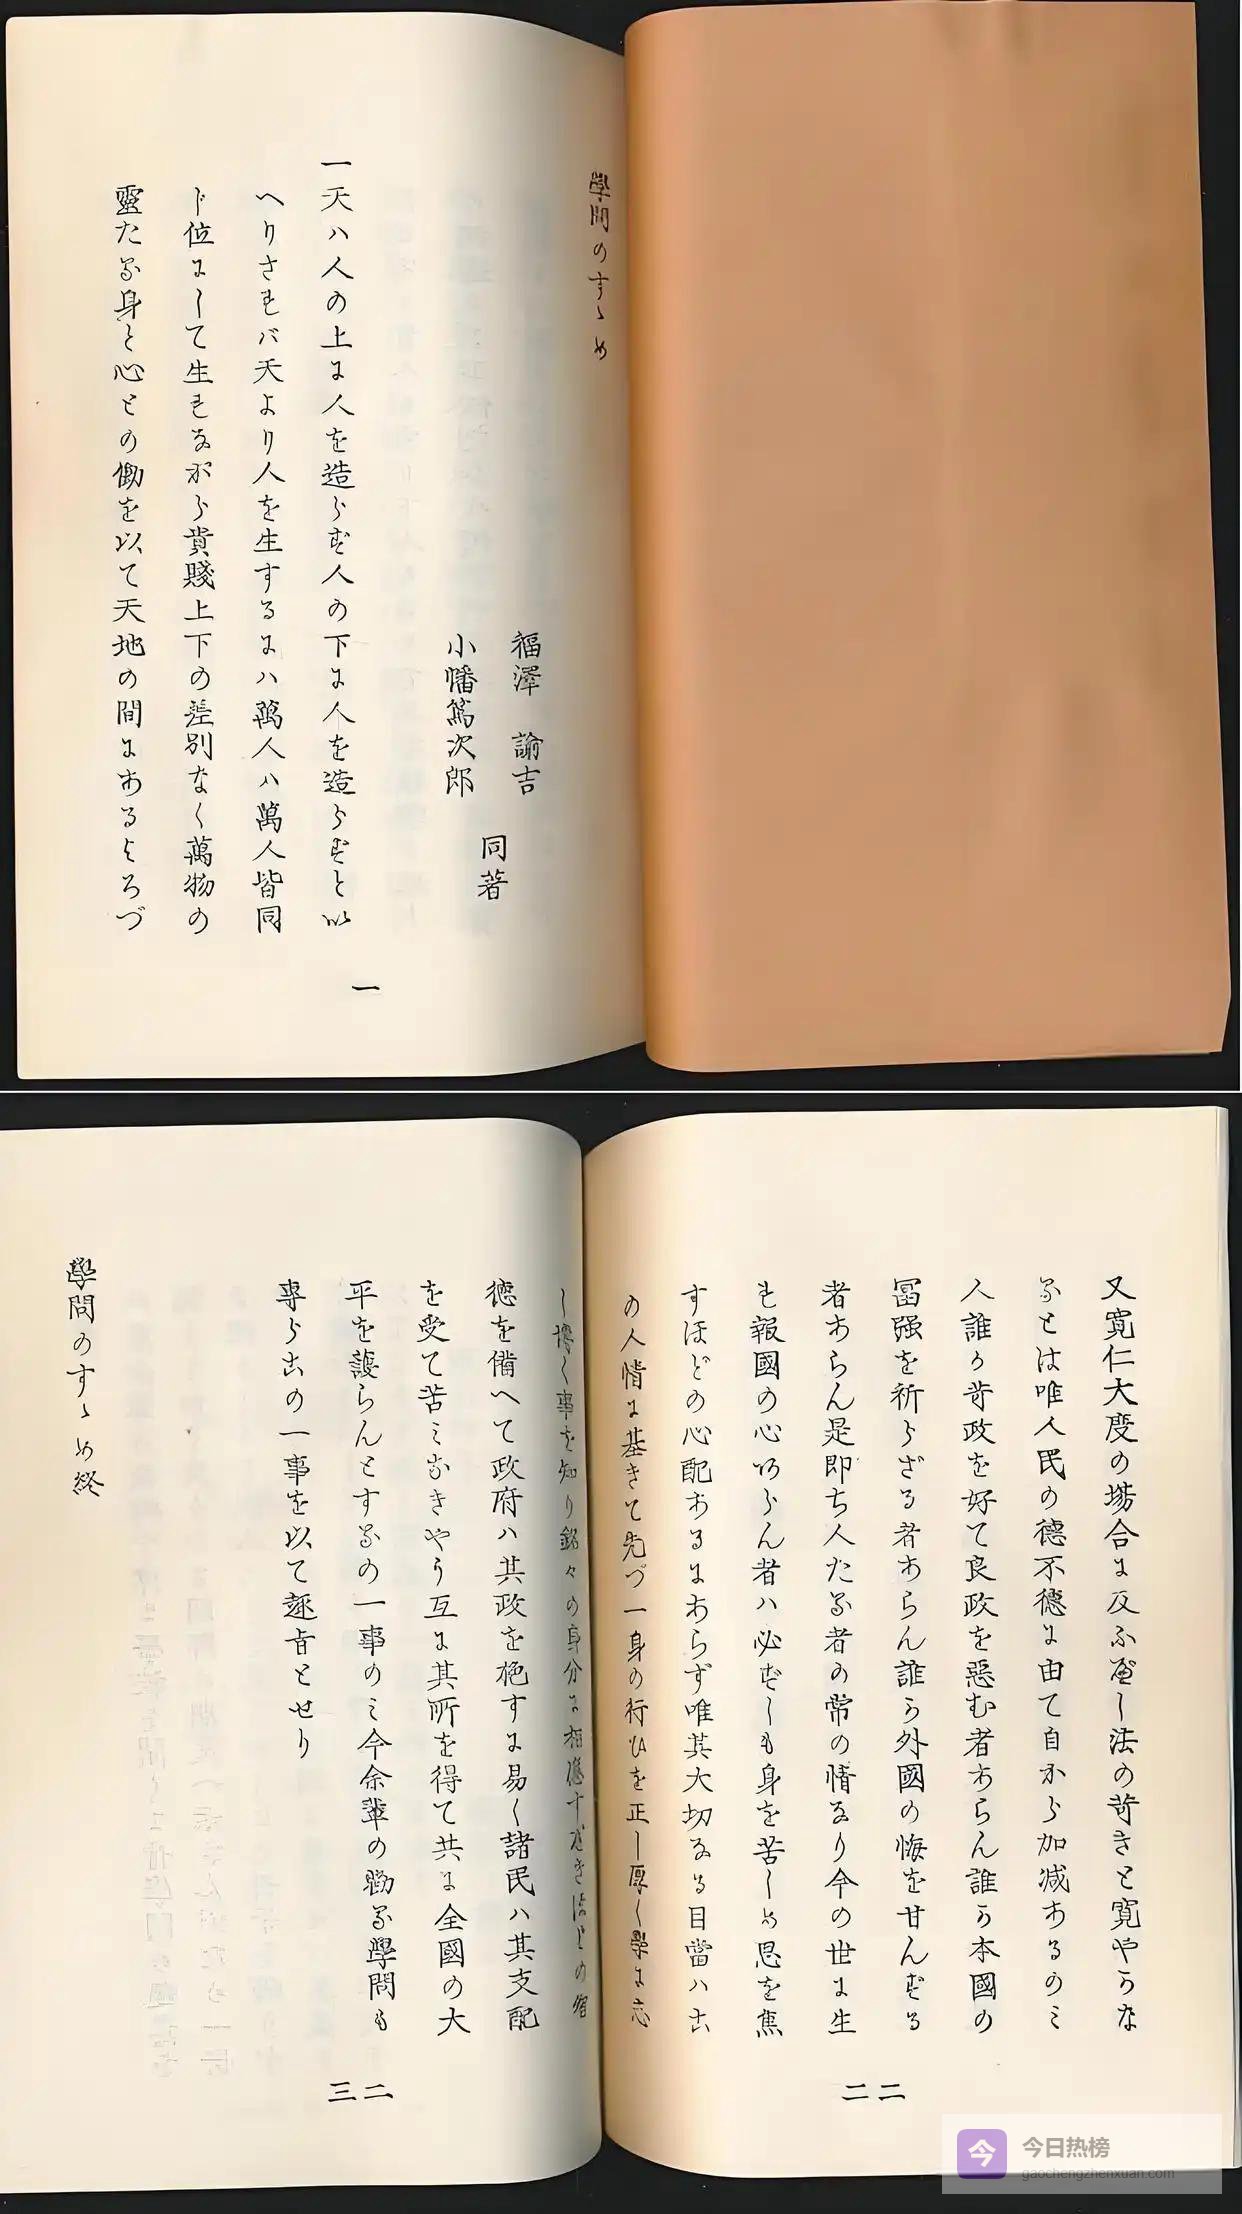 學問のすゝめ
福澤 諭吉
小幡篤次郎
同著
一天ハ人の上に人を造らず人の下に人を造らずと以
へりされバ天より人を生するにハ萬人ハ萬人皆同
ド位にして生れながら貴賤上下の差別なく萬物の
靈たる身と心との働を以て天地の間にあるよろづ
一
又寛仁大度の場合に及ふべし法の苛きと寛やかな
るとは唯人民の德不德に由て自から加減あるのミ
人誰か苛政を好て良政を惡む者あらん誰か本國の
冨强を祈らざる者あらん誰か外國の侮を甘んずる
者あらん是即ち人たる者の常の情なり今の世に生
れ報國の心あらん者ハ必ずしも身を苦しめ思を焦
すほどの心配あるにあらず唯其大切なる目當ハこ
の人情に基きて先づ一身の行ひを正し厚く學に志
し博く事を知り銘々の身分に相應すべきほどの智
德を備へて政府ハ其政を施すに易く諸民ハ其支配
を受て苦ミなきやう互に其所を得て共に全國の大
平を護らんとするの一事のミ今余輩の勸る學問も
專らこの一事を以て趣旨とせり
學問のすゝめ終
二二
三二
今日热榜
gaochengzhenxuan.com